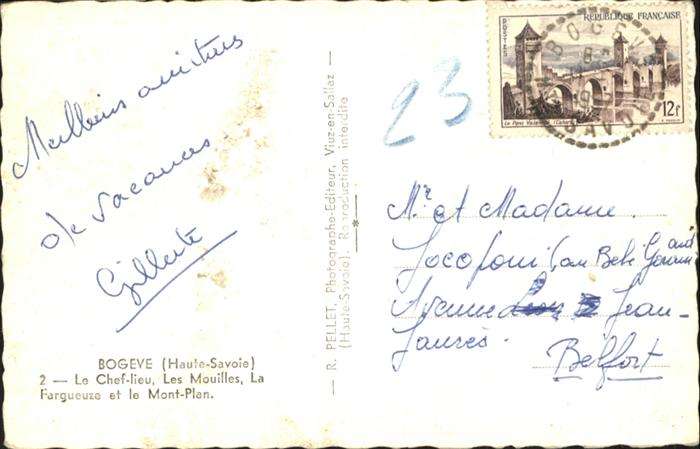 Meilleurs amitiés
de vacances
Gillette
BOGEVE (Haute-Savoie)
2 — Le Chef-lieu, Les Mouilles, La
Fargueuze et le Mont-Plan.
— R. PELLET, Photographe-Editeur, Viuz-en-Sallaz —
(Haute-Savoie). Reproduction interdite
23
POSTES
REPUBLIQUE FRANÇAISE
Le Pont Valentré (Cahors)
12f
BOGEVE
Mr et Madame.
Avenue Jean-
Jaurès.
Belfort